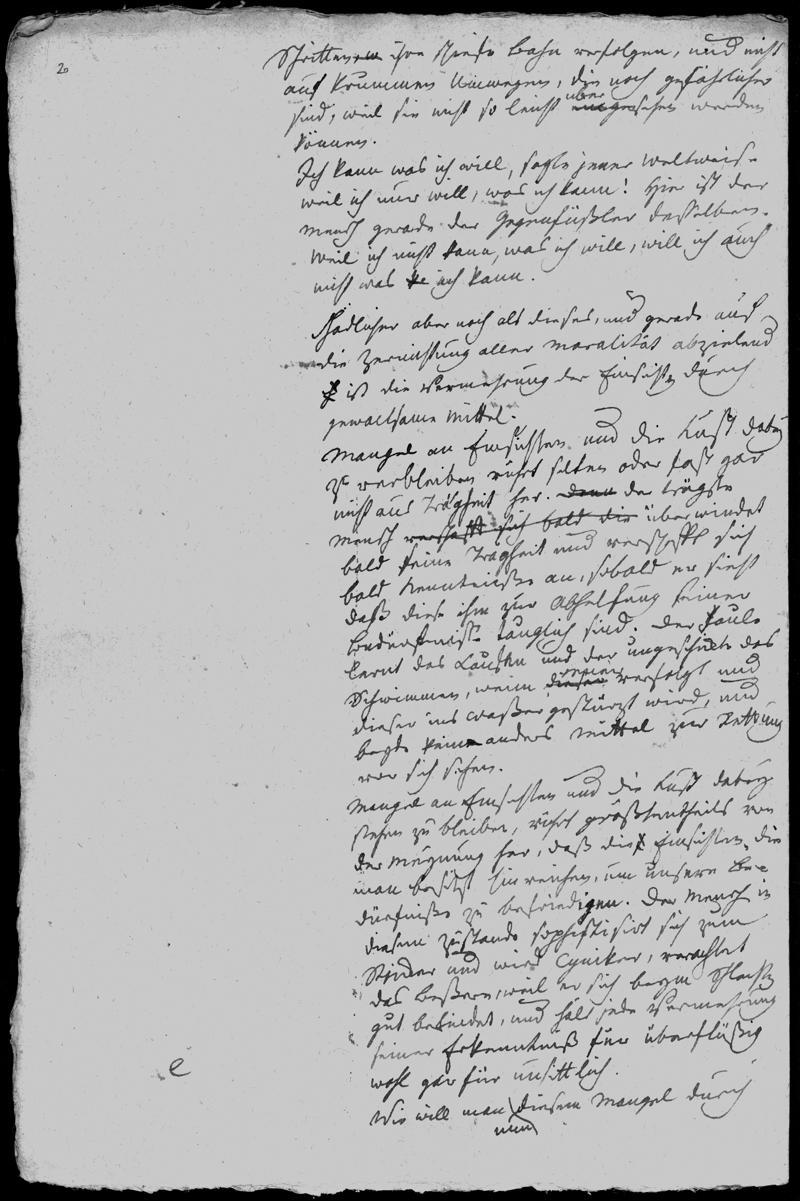 2
Schritten ihre schiefe Bahn verfolgen, und nicht
auf krummen Umwegen, die noch gefährlicher
sind, weil sie nicht so leicht übersehen werden
können.
Ich kann was ich will, sagte jener Weltweise
weil ich nur will, was ich kann! Hier ist der
Mensch gerade der Gegenfüßler desselben.
Weil ich nicht kann, was ich will, will ich auch
nicht was ich kann.
Schädlicher aber noch als dieses, und gerade auf
die Zernichtung aller Moralität abzielend
ist die Vermehrung der Einsicht durch
gewaltsame Mittel.
Mangel an Einsichten und die Lust dabey
zu verbleiben rührt selten oder fast gar
nicht aus Trägheit her. denn der trägste
Mensch verschafft sich bald die überwindet
bald seine Trägheit und verschafft sich
bald Kenntnisse an, sobald er sieht
daß diese ihm zur Abhelfung seiner
Bedürfnisse tauglich sind. Der Faule
lernt das Laufen und der ungeschickte das
Schwimmen, wenn jener verfolgt und
dieser ins Waßer gestürzt wird, und
beyde kein anders Mittel zur Rettung
vor sich sehen.
Mangel an Einsichten und die Lust dabey
stehen zu bleiben, rührt größtentheils von
der Meynung her, daß die Einsichten, die
man besitzt hinreichen, um unsere Be-
dürfniße zu befriedigen. Der Mensch in
diesem Zustande sophistisirt sich zum
und wird Cyniker, verachtet
das Beßere, weil er sich beym Schlechten
gut befindet, und hält jede Vermehrung
seiner Erkenntniß für überflüßig
wohl gar für unsittlich.
Wie will man diesem Mangel durch
nun
e